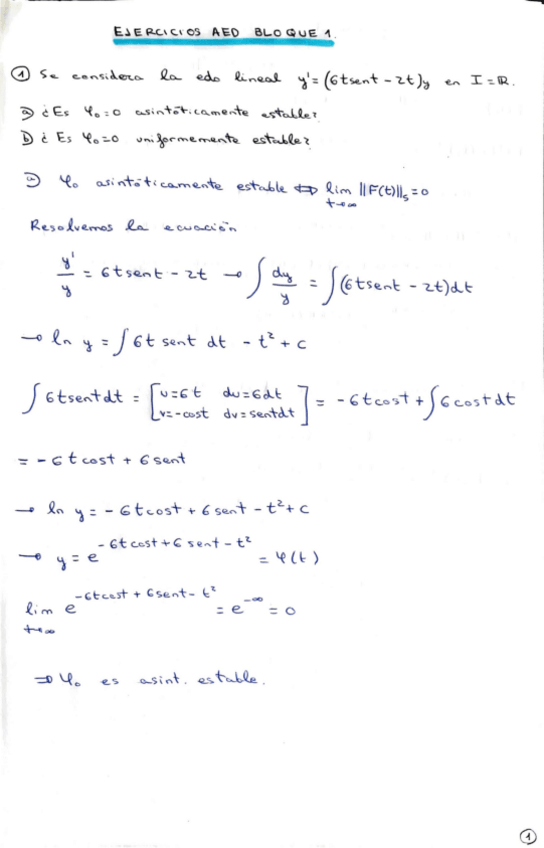 EJERCICIOS AED BLOQUE 1.
① Se considera la edo lineal y' = (6tsent - 2t)y en I = ℝ.
a) ¿Es φ₀ = 0 asintóticamente estable?
b) ¿Es φ₀ = 0 uniformemente estable?
a) φ₀ asintóticamente estable ⇔ lim_{t→∞} ||F(t)||_s = 0
Resolvemos la ecuación
y'/y = 6tsent - 2t → ∫ dy/y = ∫(6tsent - 2t)dt
→ ln y = ∫ 6t sent dt - t² + c
∫ 6tsentdt = [u=6t du=6dt v=-cost dv=sentdt] = -6tcost + ∫ 6costdt
= -6tcost + 6sent
→ ln y = -6tcost + 6sent - t² + c
→ y = e^{-6tcost + 6sent - t²} = φ(t)
lim_{t→∞} e^{-6tcost + 6sent - t²} = e^{-∞} = 0
⇒ φ₀ es asint. estable.
①